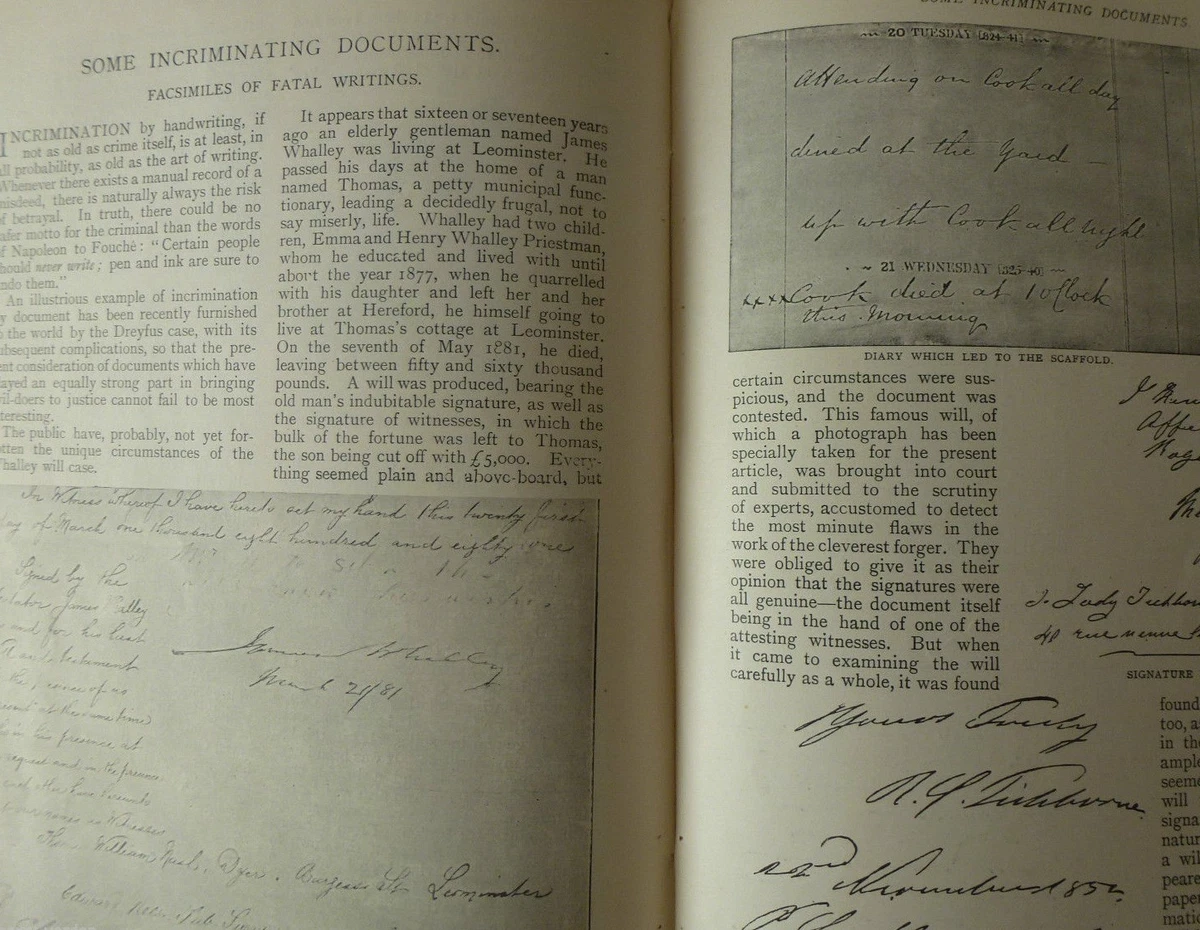 SOME INCRIMINATING DOCUMENTS.
FACSIMILES OF FATAL WRITINGS.
INCRIMINATION by handwriting, if
not as old as crime itself, is at least, in
all probability, as old as the art of writing.
Whenever there exists a manual record of a
misdeed, there is naturally always the risk
of betrayal. In truth, there could be no
safer motto for the criminal than the words
of Napoleon to Fouché: "Certain people
should never write; pen and ink are sure to
undo them."
An illustrious example of incrimination
by document has been recently furnished
to the world by the Dreyfus case, with its
subsequent complications, so that the pre-
sent consideration of documents which have
played an equally strong part in bringing
evil-doers to justice cannot fail to be most
interesting.
The public have, probably, not yet for-
gotten the unique circumstances of the
Whalley will case.
It appears that sixteen or seventeen years
ago an elderly gentleman named James
Whalley was living at Leominster. He
passed his days at the home of a man
named Thomas, a petty municipal func-
tionary, leading a decidedly frugal, not to
say miserly, life. Whalley had two child-
ren, Emma and Henry Whalley Priestman,
whom he educated and lived with until
about the year 1877, when he quarrelled
with his daughter and left her and her
brother at Hereford, he himself going to
live at Thomas's cottage at Leominster.
On the seventh of May 1881, he died,
leaving between fifty and sixty thousand
pounds. A will was produced, bearing the
old man's indubitable signature, as well as
the signature of witnesses, in which the
bulk of the fortune was left to Thomas,
the son being cut off with £5,000. Every-
thing seemed plain and above-board, but
In Witness whereof I have hereto set my hand this twenty first
day of March one thousand eight hundred and eighty one
Signed by the
James
and for his last
and testament
at the same time
in his presence at
request and in the presence
each other have
our names as Witnesses
James Whalley
March 21/81
William Nash, Dyer, Burgess St Leominster
SOME INCRIMINATING DOCUMENTS
20 TUESDAY [324-41]
Attending on Cook all day
dined at the Yard —
up with Cook all night
21 WEDNESDAY [325-40]
xxxx Cook died at 1 o'Clock
this Morning
DIARY WHICH LED TO THE SCAFFOLD.
certain circumstances were sus-
picious, and the document was
contested. This famous will, of
which a photograph has been
specially taken for the present
article, was brought into court
and submitted to the scrutiny
of experts, accustomed to detect
the most minute flaws in the
work of the cleverest forger. They
were obliged to give it as their
opinion that the signatures were
all genuine—the document itself
being in the hand of one of the
attesting witnesses. But when
it came to examining the will
carefully as a whole, it was found
Yours Truly
R. C. Tichborne
22nd November 1852
To Lady Tichbor
40 rue
SIGNATURE
found
too, a
in the
ample
seeme
will
signa
natur
a wil
peare
paper
matic